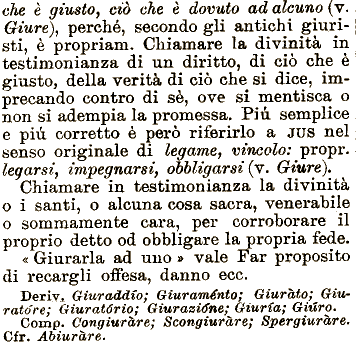 che è giusto, ciò che è dovuto ad alcuno (v.
Giure), perché, secondo gli antichi giuri-
sti, è propriam. Chiamare la divinità in
testimonianza di un diritto, di ciò che è
giusto, della verità di ciò che si dice, im-
precando contro di sè, ove si mentisca o
non si adempia la promessa. Piú semplice
e piú corretto è però riferirlo a JUS nel
senso originale di legame, vincolo: propr.
legarsi, impegnarsi, obbligarsi (v. Giure).
Chiamare in testimonianza la divinità
o i santi, o alcuna cosa sacra, venerabile
o sommamente cara, per corroborare il
proprio detto od obbligare la propria fede.
«Giurarla ad uno» vale Far proposito
di recargli offesa, danno ecc.
Deriv. Giuraddío; Giuraménto; Giuràto; Giu-
ratóre; Giuratório; Giurazióne; Giuría; Giúro.
Comp. Congiuràre; Scongiuràre; Spergiuràre.
Cfr. Abiuràre.